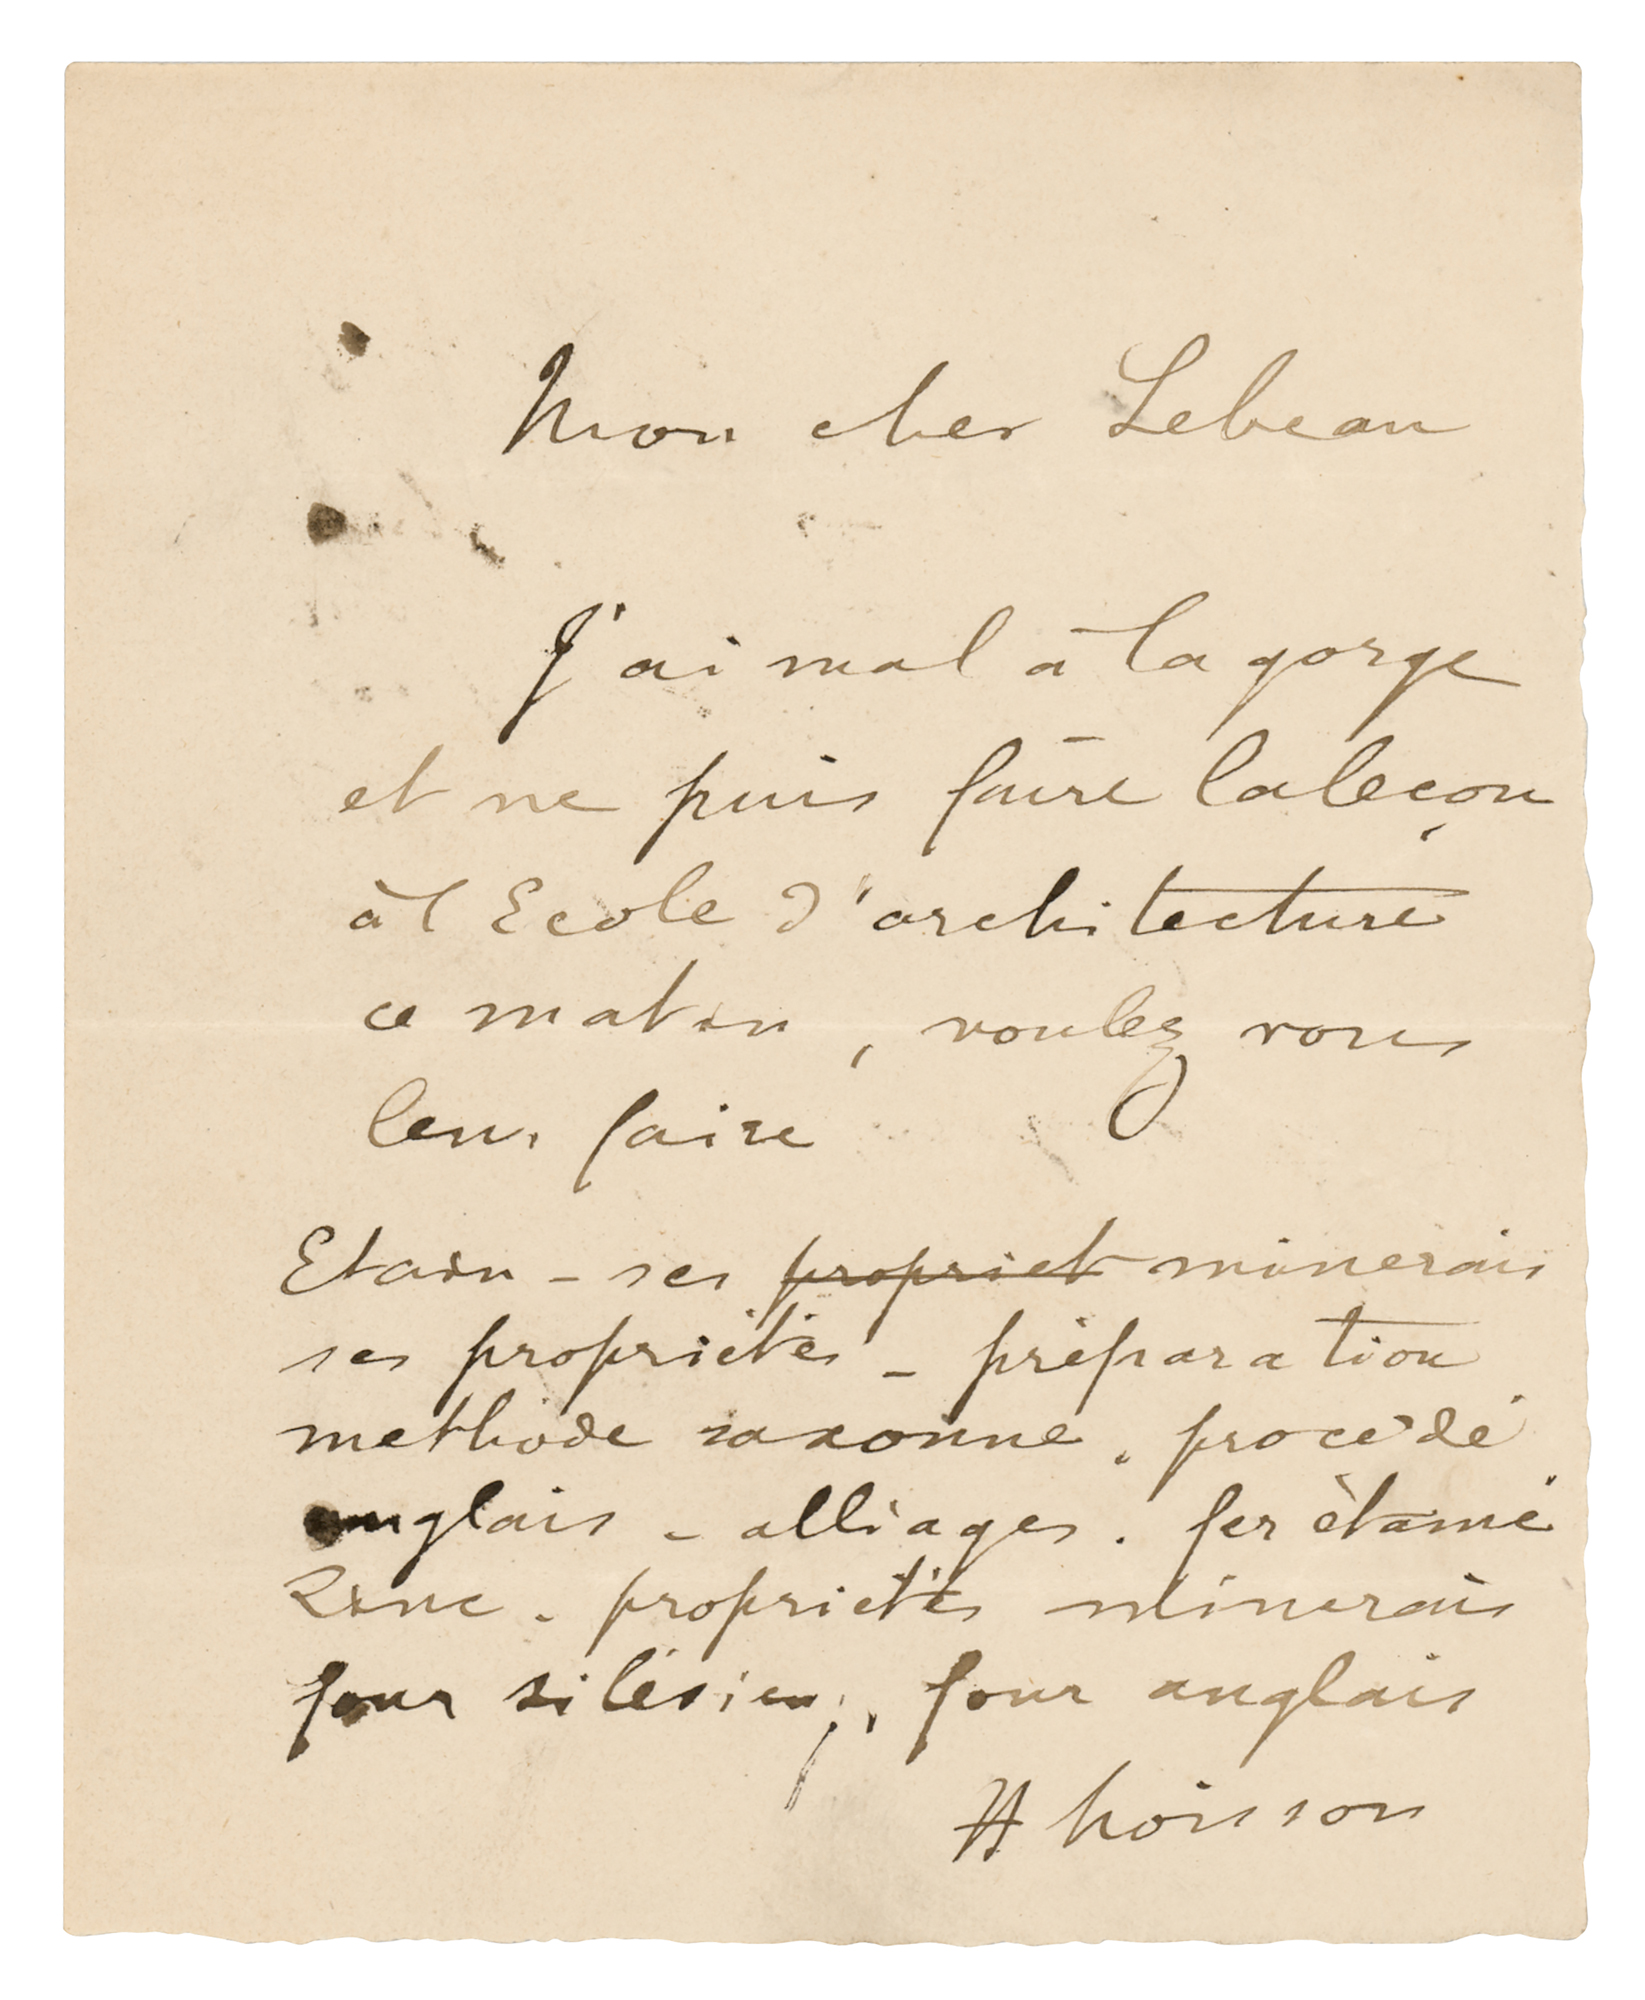 Mon cher Lebeau
J'ai mal à la gorge
et ne puis faire la leçon
à l Ecole d'architecture
ce matin, voulez vous
leur faire
Etain - ses propriet minerais
ses propriétés - préparation
methode saxonne. procédé
anglais - alliages. fer étamé
Zinc - propriétés minerais
four silésien, four anglais
H Moisson